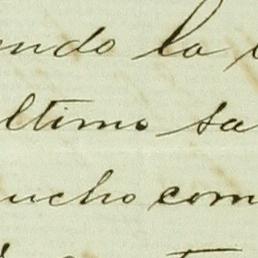 ndo la
ltimo sa
ucho com